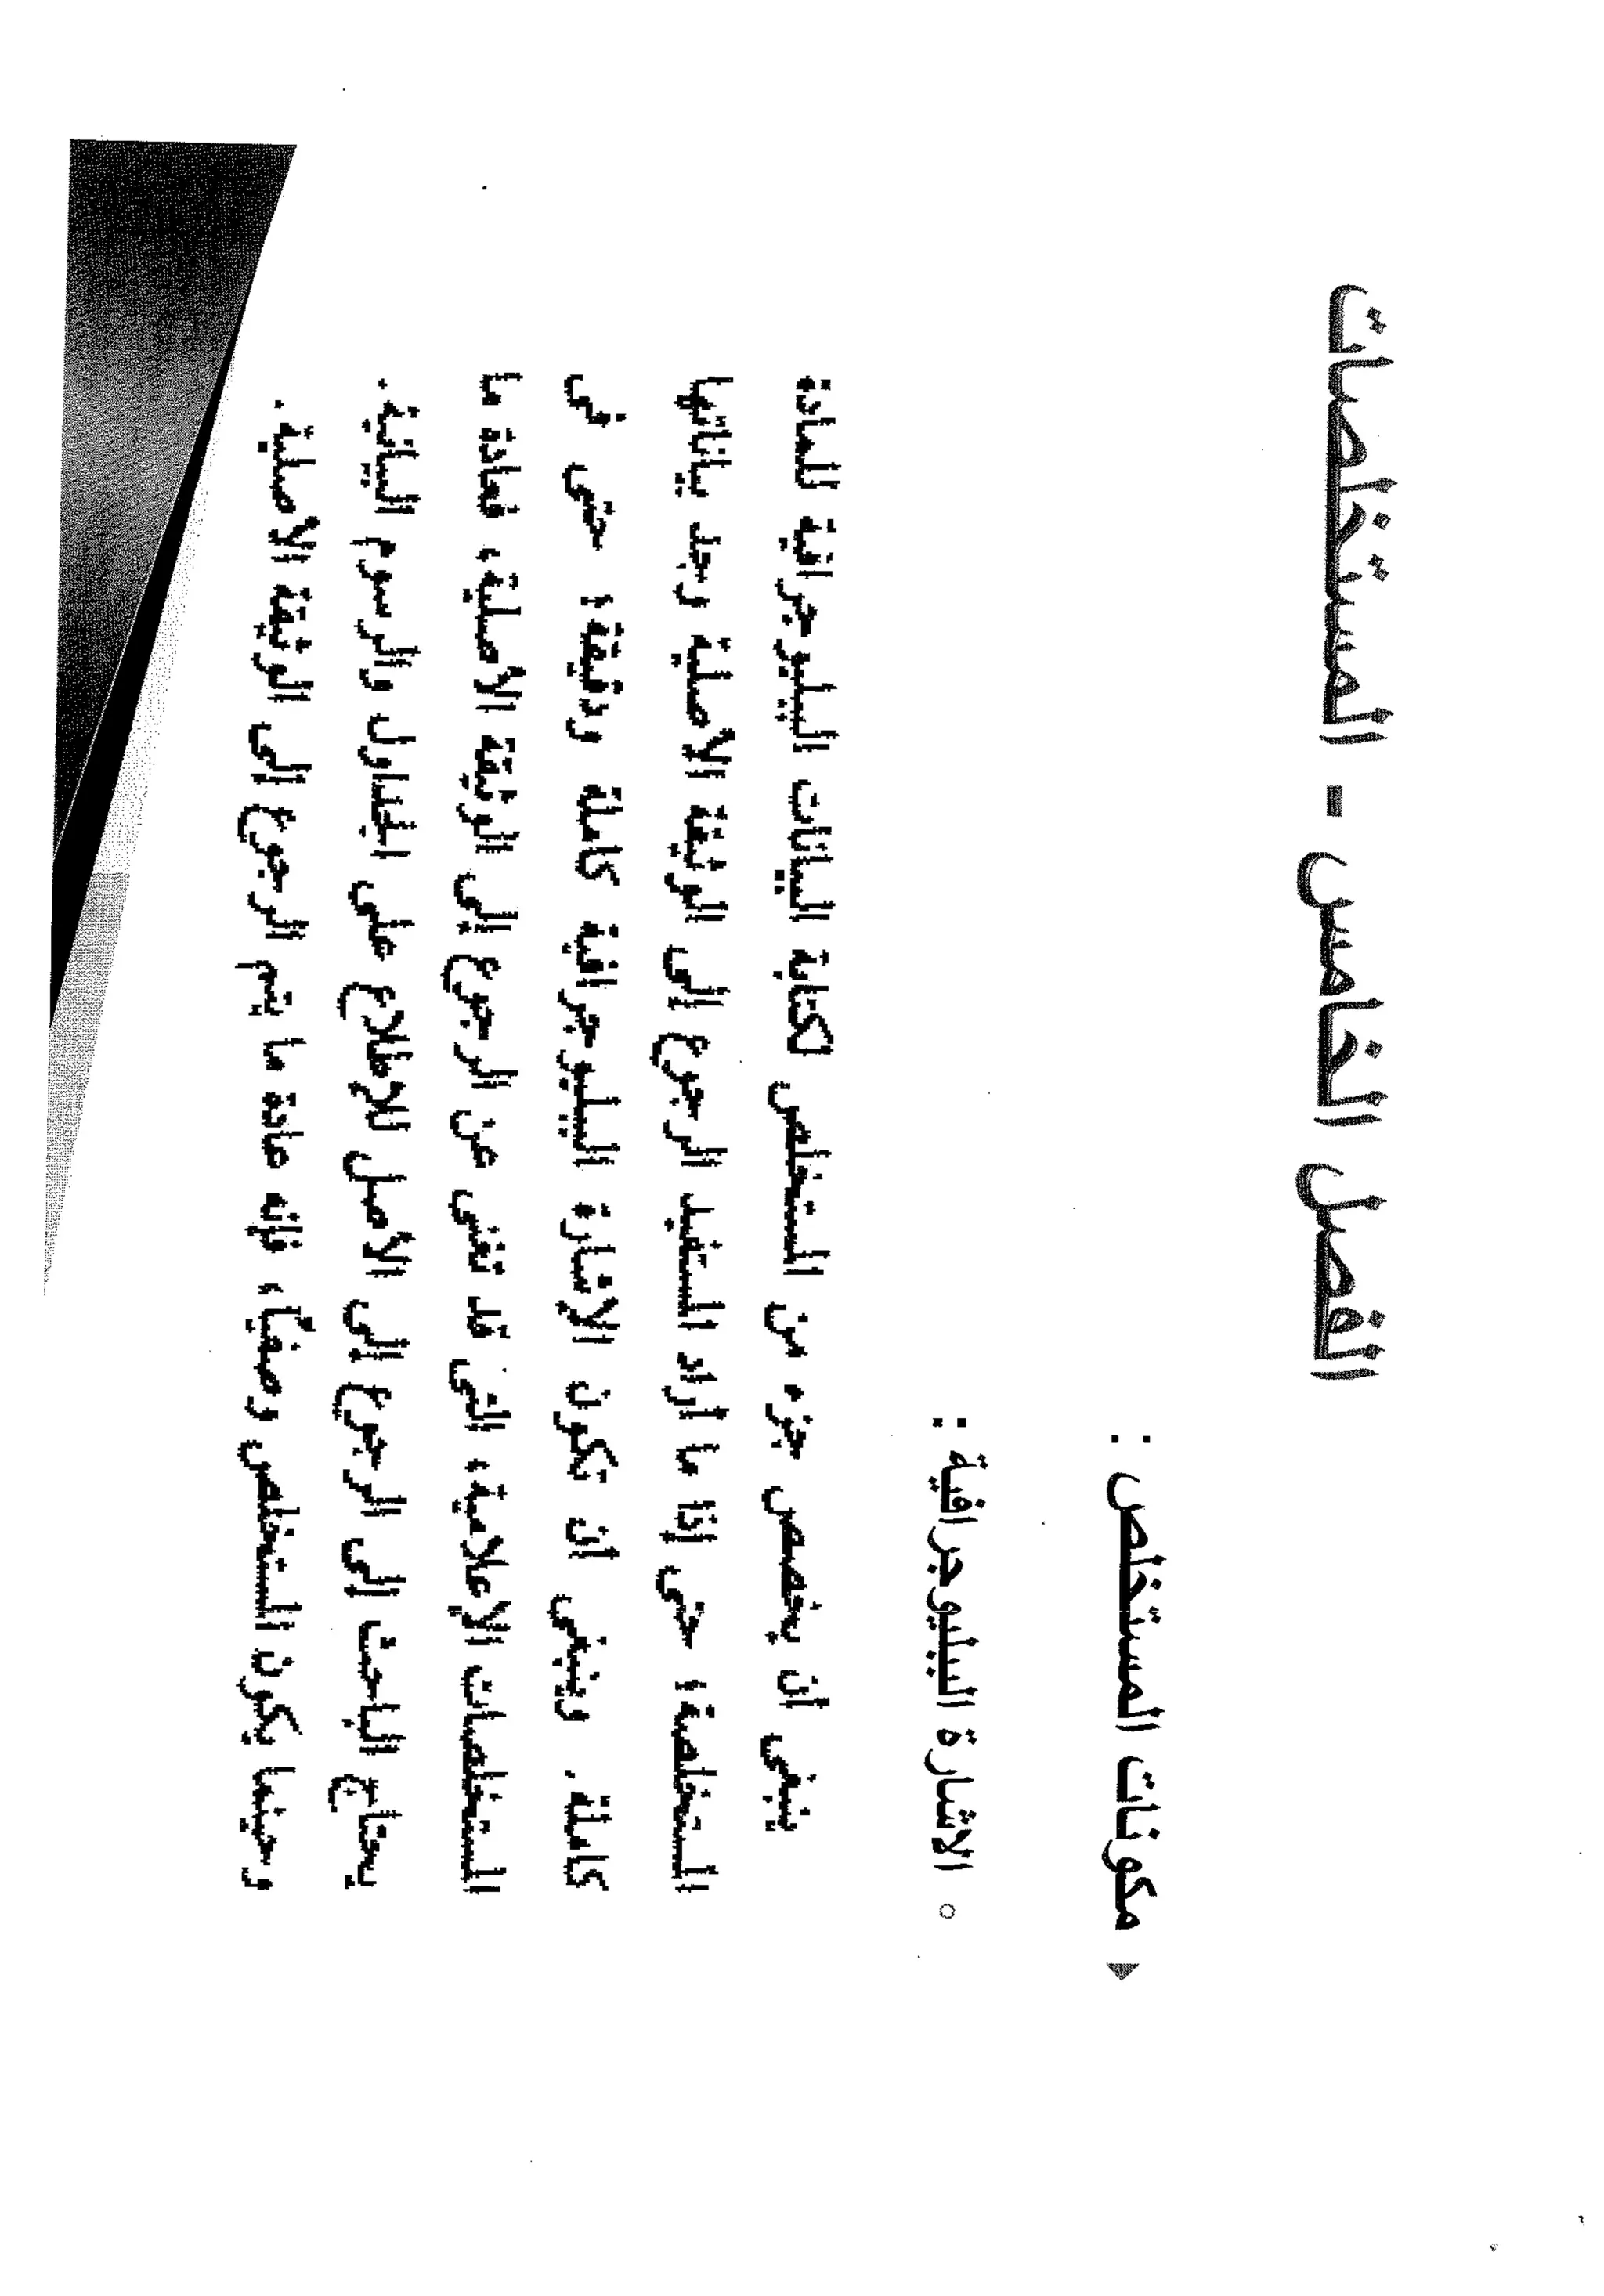 الفصل الخامس - المستخلصات
مكونات المستخلص :
الاشارة الببليوجرافية :
ينبغى أن يخصص جزء من المستخلص لكتابة البيانات الببليوجرافية للمادة
المستخلصة، حتى إذا ما أراد المستفيد الرجوع إلى الوثيقة الأصلية وجد بياناتها
كاملة. وينبغى أن تكون الإشارة الببليوجرافية كاملة ودقيقة، حتى فى
المستخلصات الإعلامية، التى قد تغنى عن الرجوع إلى الوثيقة الأصلية، فعادة ما
يحتاج الباحث إلى الرجوع إلى الأصل للإطلاع على الجداول والرسوم البيانية.
وحينما يكون المستخلص وصفياً، فإنه عادة ما يتم الرجوع إلى الوثيقة الأصلية.